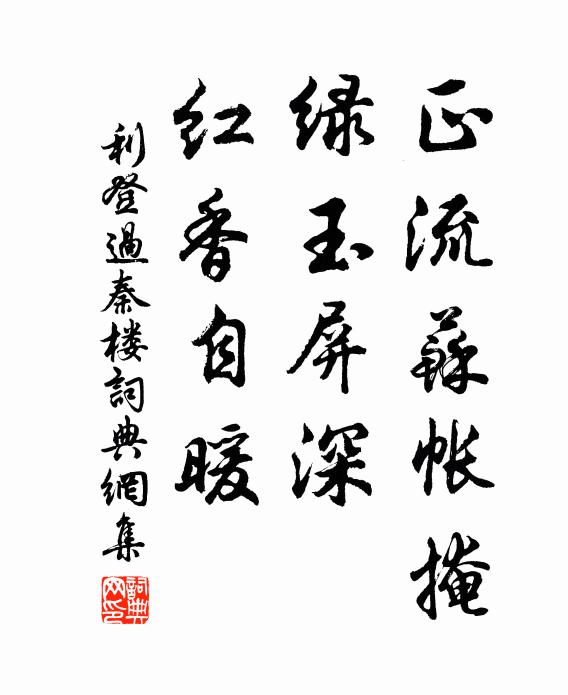 正流蘇帐掩
绿玉屏深
红香自暖
利登過秦楼詞典網集
詞典网印